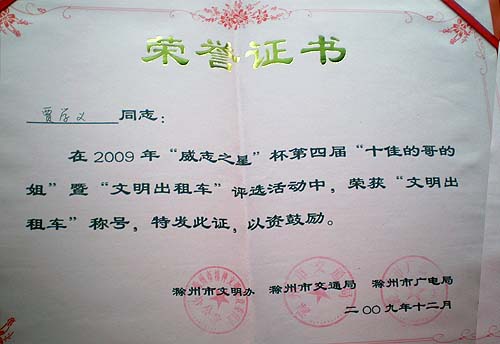 荣誉证书
贾学义 同志：
在2009年“威志之星”杯第四届“十佳的哥的
姐”暨“文明出租车”评选活动中，荣获“文明出
租车”称号，特发此证，以资鼓励。
滁州市文明办 滁州市交通局 滁州市广电局
二〇〇九年十二月